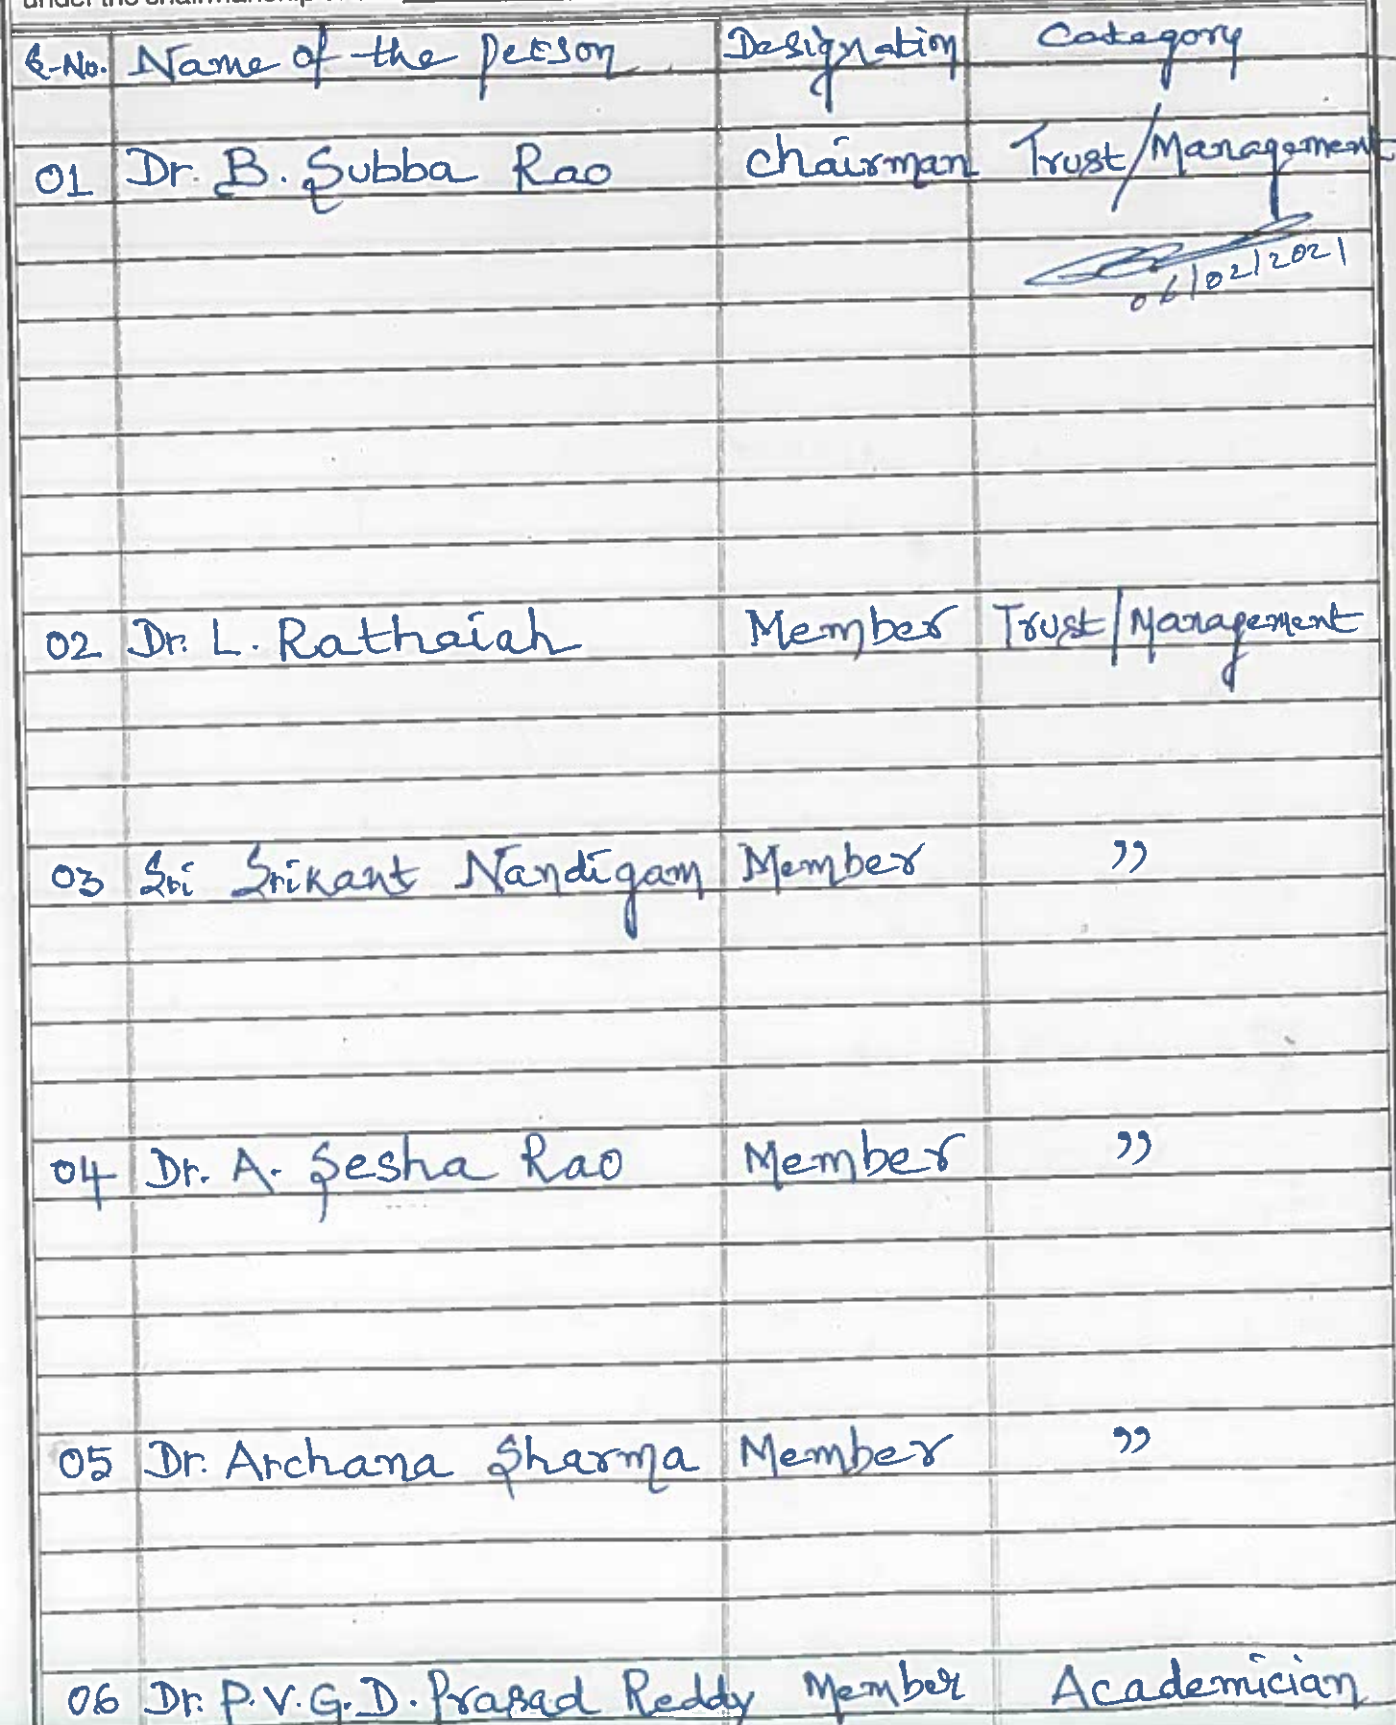 under the chairmanship
S.No. Name of the person Designation Category
01 Dr. B. Subba Rao Chairman Trust/Management
06/02/2021
02 Dr. L. Rathaiah Member Trust/Management
03 Sri Srikant Nandigam Member "
04 Dr. A. Sesha Rao Member "
05 Dr. Archana Sharma Member "
06 Dr. P.V.G.D. Prasad Reddy Member Academician